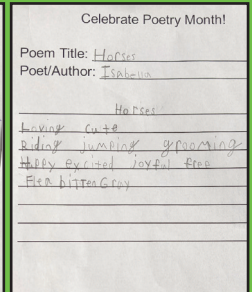 Celebrate Poetry Month!
Poem Title: Horses
Poet/Author: Isabella
Horses
Loving cute
Riding jumping grooming
Happy excited joyful free
Flea bitten Gray